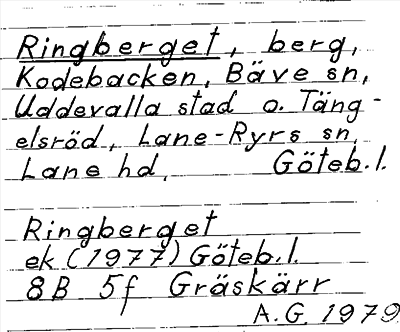 Ringberget, berg,
Kodebacken, Bäve sn,
Uddevalla stad o. Täng-
elsröd, Lane-Ryrs sn,
Lane hd, Göteb.l.
Ringberget
ek (1977) Göteb.l.
8B 5f Gräskärr
A.G. 1979